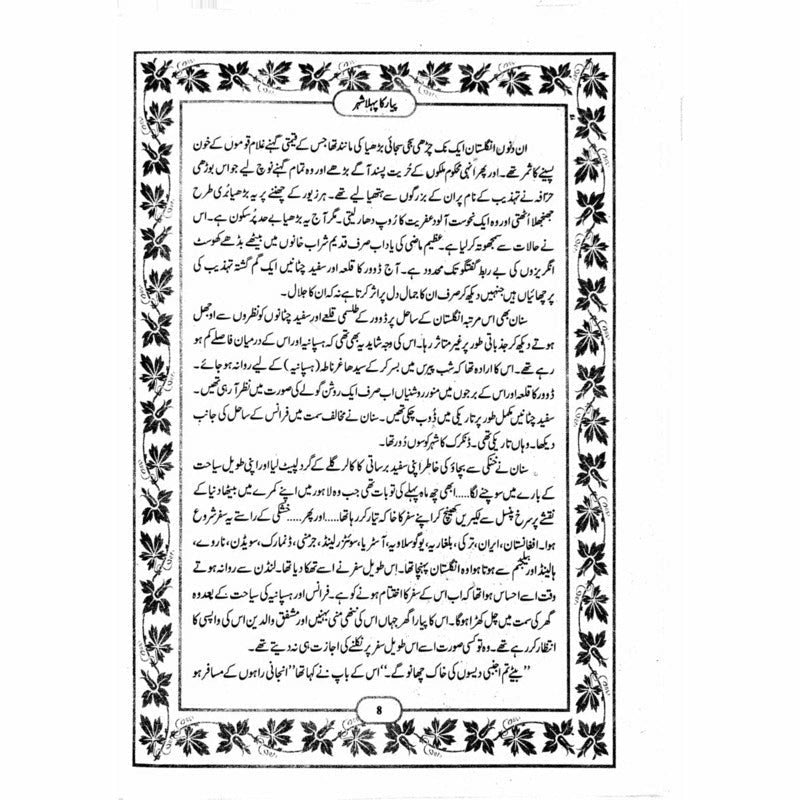 پیار کا پہلا شہر
ان دنوں انگلستان ایک تک چڑھی بجی سجائی بڑھیا کی مانند تھا جس کے قیمتی گہنے غلام قوموں کے خون
پسینے کا ثمر تھے۔ اور پھر انہی محکوم ملکوں کے حُریت پسند آگے بڑھے اور وہ تمام گہنے نوچ لیے جو اس بوڑھی
حرّافہ نے تہذیب کے نام پر ان کے بزرگوں سے ہتھیا لیے تھے۔ ہر زیور کے چھننے پر یہ بڑھیا بُری طرح
جھنجھلا اُٹھتی اور وہ ایک نحوست آلود عفریت کا رُوپ دھار لیتی۔ مگر آج یہ بڑھیا بے حد پُرسکون ہے۔ اس
نے حالات سے سمجھوتہ کر لیا ہے۔ عظیم ماضی کی یاد اب صرف قدیم شراب خانوں میں بیٹھے بڈھے کھوسٹ
انگریزوں کی بے ربط گفتگو تک محدود ہے۔ آج ڈوور کا قلعہ اور سفید چٹانیں ایک گم گشتہ تہذیب کی
پرچھائیاں ہیں جنہیں دیکھ کر صرف ان کا جمال دل پر اثر کرتا ہے نہ کہ ان کا جلال۔
سنان بھی اس مرتبہ انگلستان کے ساحل پر ڈوور کے طلسمی قلعے اور سفید چٹانوں کو نظروں سے اوجھل
ہوتے دیکھ کر جذباتی طور پر غیر متاثر رہا۔ اس کی وجہ شاید یہ بھی تھی کہ ہسپانیہ اور اس کے درمیان فاصلے کم ہو
رہے تھے۔ اس کا ارادہ تھا کہ شب پیرس میں بسر کر کے سیدھا غرناطہ (ہسپانیہ) کے لیے روانہ ہو جائے۔
ڈوور کا قلعہ اور اس کے برجوں میں منور روشنیاں اب صرف ایک روشن گولے کی صورت میں نظر آ رہی تھیں۔
سفید چٹانیں مکمل طور پر تاریکی میں ڈوب چکی تھیں۔ سنان نے مخالف سمت میں فرانس کے ساحل کی جانب
دیکھا۔ وہاں تاریکی تھی۔ ڈنکرک کا شہر کوسوں دُور تھا۔
سنان نے خنکی سے بچاؤ کی خاطر اپنی سفید برساتی کا کالر گلے کے گرد لپیٹ لیا اور اپنی طویل سیاحت
کے بارے میں سوچنے لگا..... ابھی چھ ماہ پہلے کی تو بات تھی جب وہ لاہور میں اپنے کمرے میں بیٹھا دنیا کے
نقشے پر سرخ پنسل سے لکیریں کھینچ کر اپنے سفر کا خاکہ تیار کر رہا تھا..... اور پھر..... خشکی کے راستے یہ سفر شروع
ہوا۔ افغانستان، ایران، ترکی، بلغاریہ، یوگوسلاویہ، آسٹریا، سوئٹزرلینڈ، جرمنی، ڈنمارک، سویڈن، ناروے،
ہالینڈ اور بیلجیئم سے ہوتا ہوا وہ انگلستان پہنچا تھا۔ اِس طویل سفر نے اسے تھکا دیا تھا۔ لنڈن سے روانہ ہوتے
وقت اسے احساس ہوا تھا کہ اب اس کے سفر کا اختتام ہونے کو ہے۔ فرانس اور ہسپانیہ کی سیاحت کے بعد وہ
گھر کی سمت میں چل کھڑا ہو گا۔ اس کا پیارا گھر جہاں اس کی ننھی منی بہنیں اور مشفق والدین اس کی واپسی کا
انتظار کر رہے تھے۔ وہ تو کسی صورت اسے اس طویل سفر پر نکلنے کی اجازت ہی نہ دیتے تھے۔
”بیٹے تم اجنبی دیسوں کی خاک چھانو گے۔“ اس کے باپ نے کہا تھا ”انجانی راہوں کے مسافر ہو
8